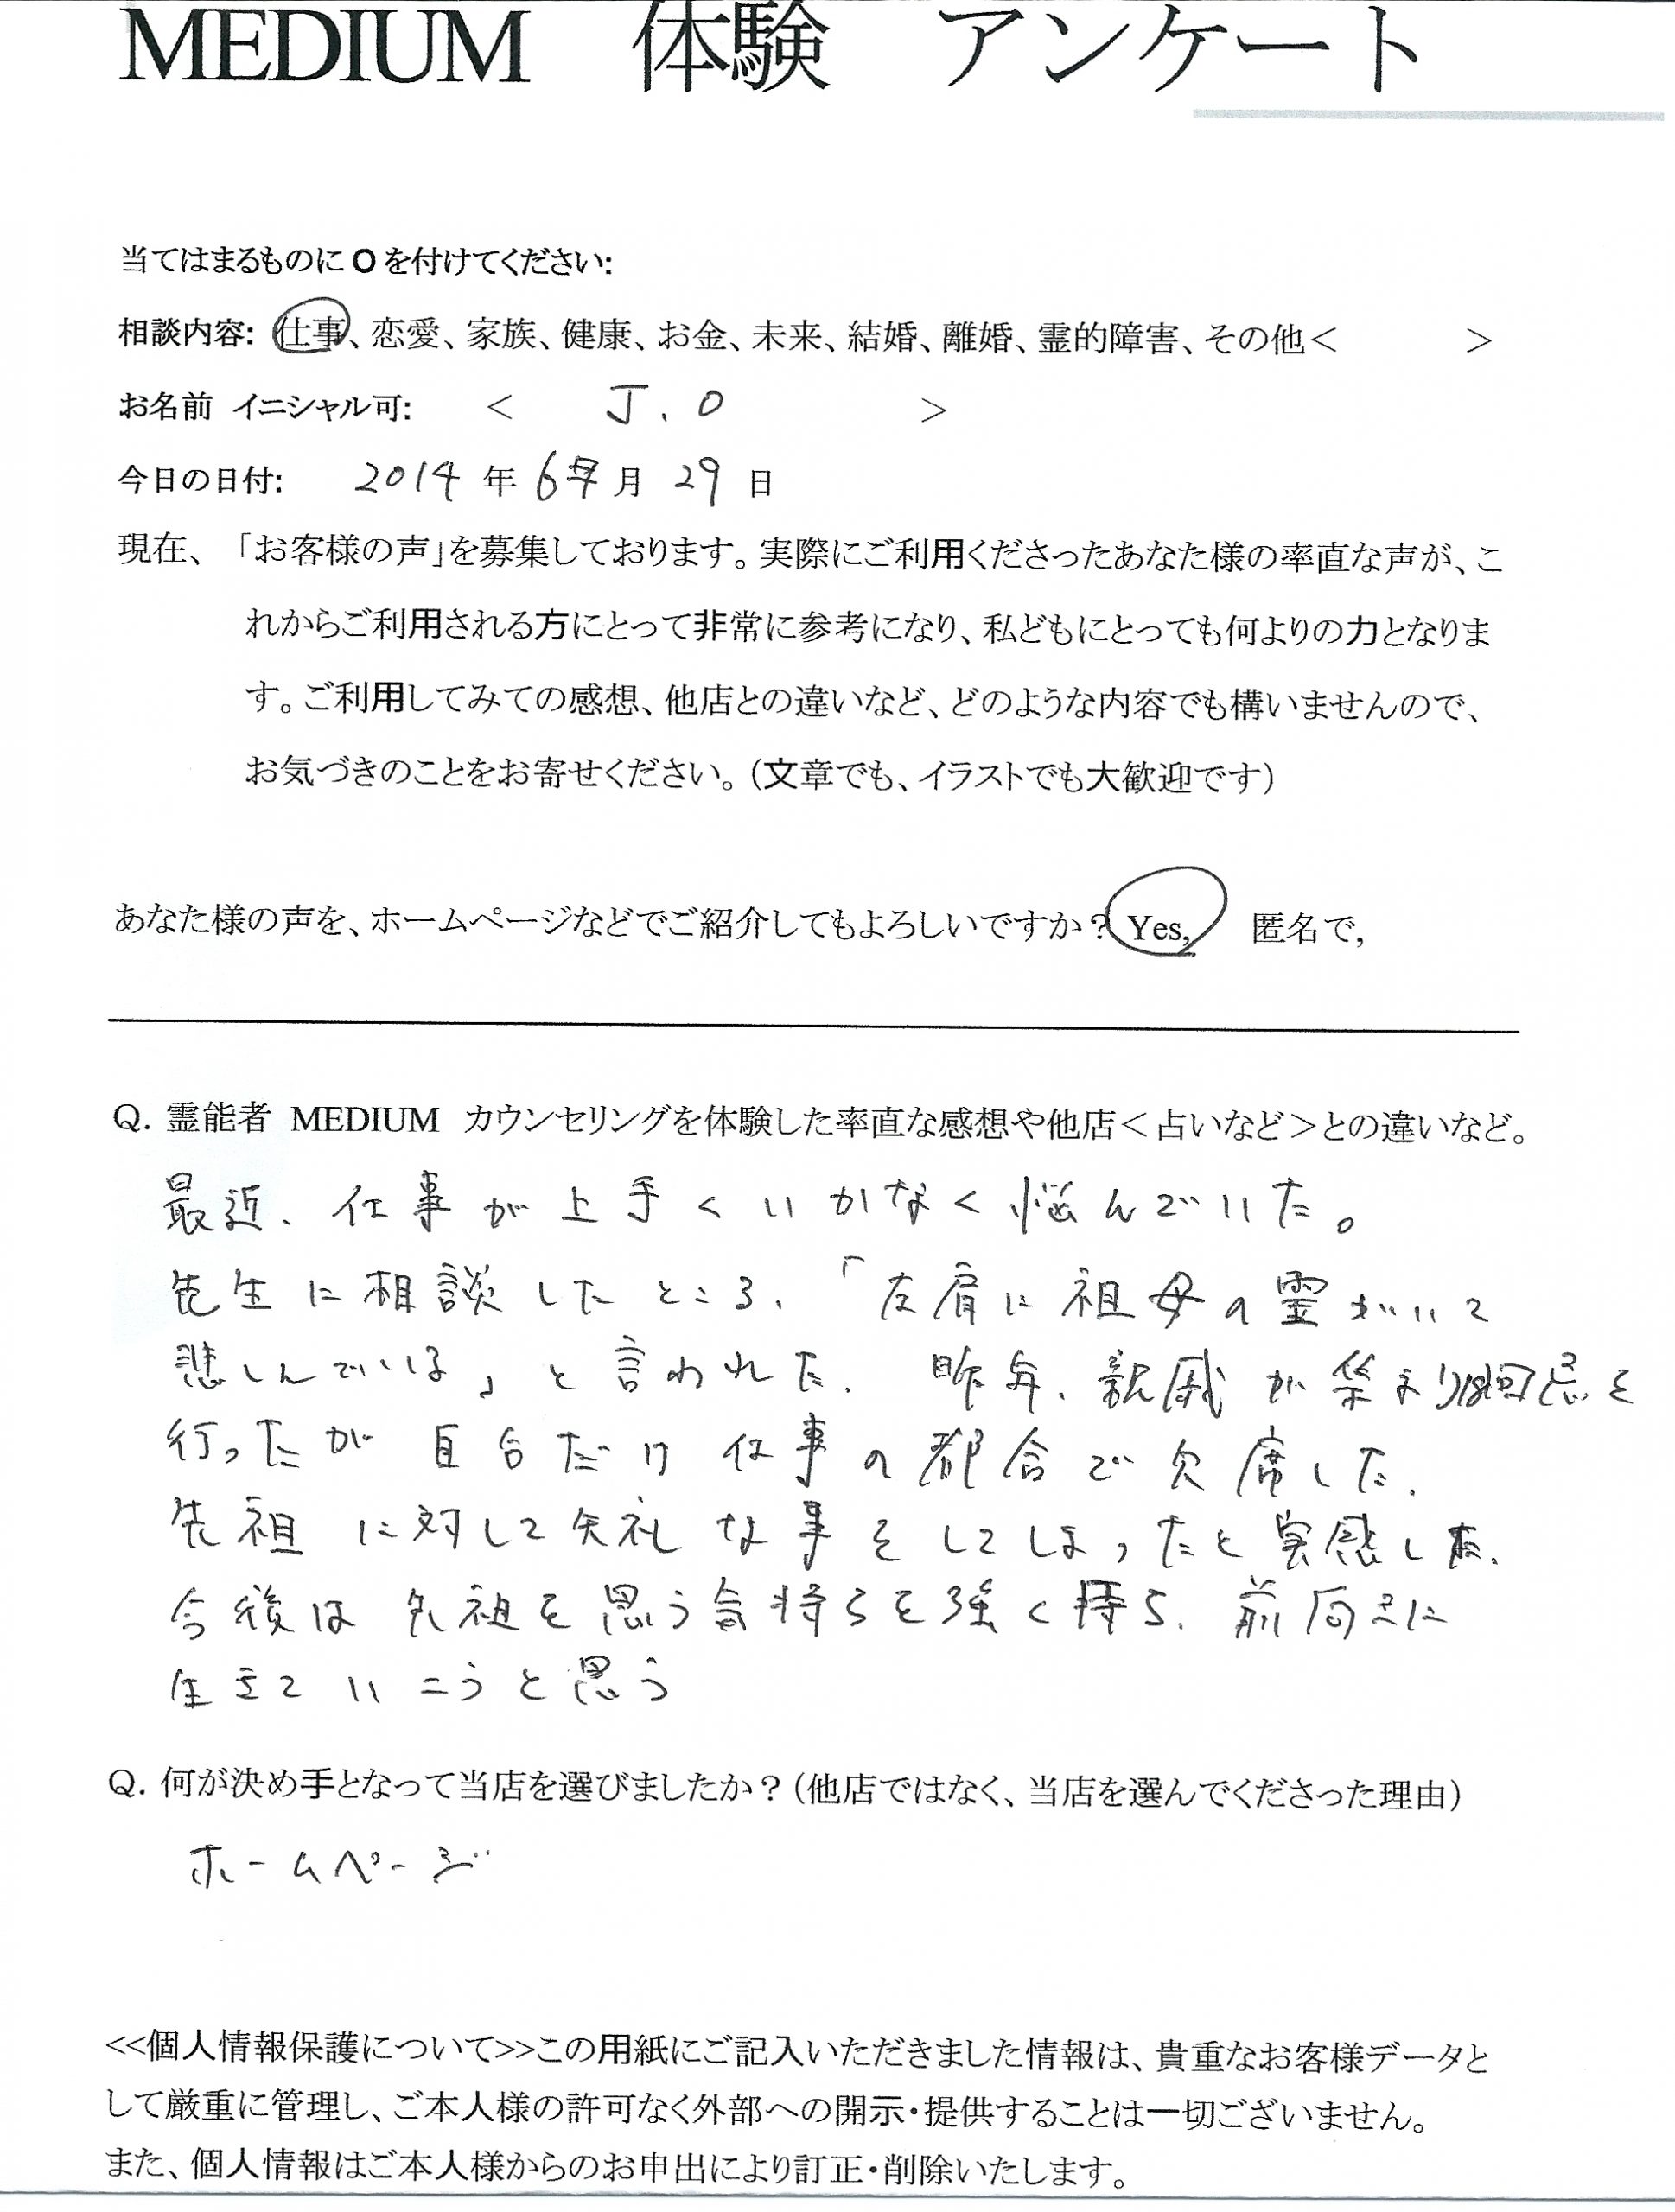 MEDIUM 体験 アンケート
当てはまるものにOを付けてください:
相談内容: 仕事、恋愛、家族、健康、お金、未来、結婚、離婚、霊的障害、その他< >
お名前 イニシャル可: < J.O >
今日の日付: 2014 年 6 月 29 日
現在、「お客様の声」を募集しております。実際にご利用くださったあなた様の率直な声が、こ
れからご利用される方にとって非常に参考になり、私どもにとっても何よりの力となりま
す。ご利用してみての感想、他店との違いなど、どのような内容でも構いませんので、
お気づきのことをお寄せください。(文章でも、イラストでも大歓迎です)
あなた様の声を、ホームページなどでご紹介してもよろしいですか? Yes, 匿名で,
Q. 霊能者 MEDIUM カウンセリングを体験した率直な感想や他店<占いなど>との違いなど。
最近、仕事が上手くいかなく悩んでいた。
先生に相談したところ、「左肩に祖母の霊がいて
悲しんでいる」と言われた. 昨年、親戚が集まり 回忌を
行ったが自分だけ仕事の都合で欠席した.
先祖に対して失礼な事をしてしまったと実感した.
今後は先祖を思う気持ちを強く持ち、前向きに
生きていこうと思う
Q. 何が決め手となって当店を選びましたか?(他店ではなく、当店を選んでくださった理由)
ホームページ
<<個人情報保護について>>この用紙にご記入いただきました情報は、貴重なお客様データと
して厳重に管理し、ご本人様の許可なく外部への開示・提供することは一切ございません。
また、個人情報はご本人様からのお申出により訂正・削除いたします。